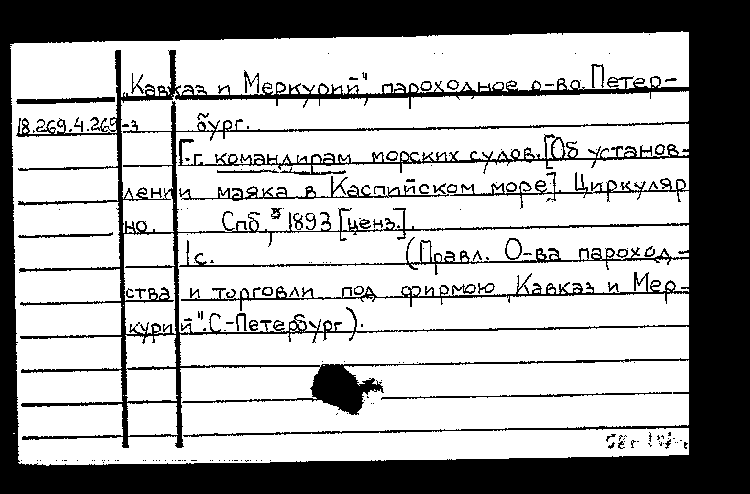 „Кавказ и Меркурий", пароходное о-во. Петер-
18.269.4.269-з бург.
Г.г. командирам морских судов. [Об установ-
лении маяка в Каспийском море]. Циркуляр
но. Спб., 1893 [ценз.].
1с. (Правл. О-ва пароход-
ства и торговли под фирмою „Кавказ и Мер-
курий". С-Петербург).